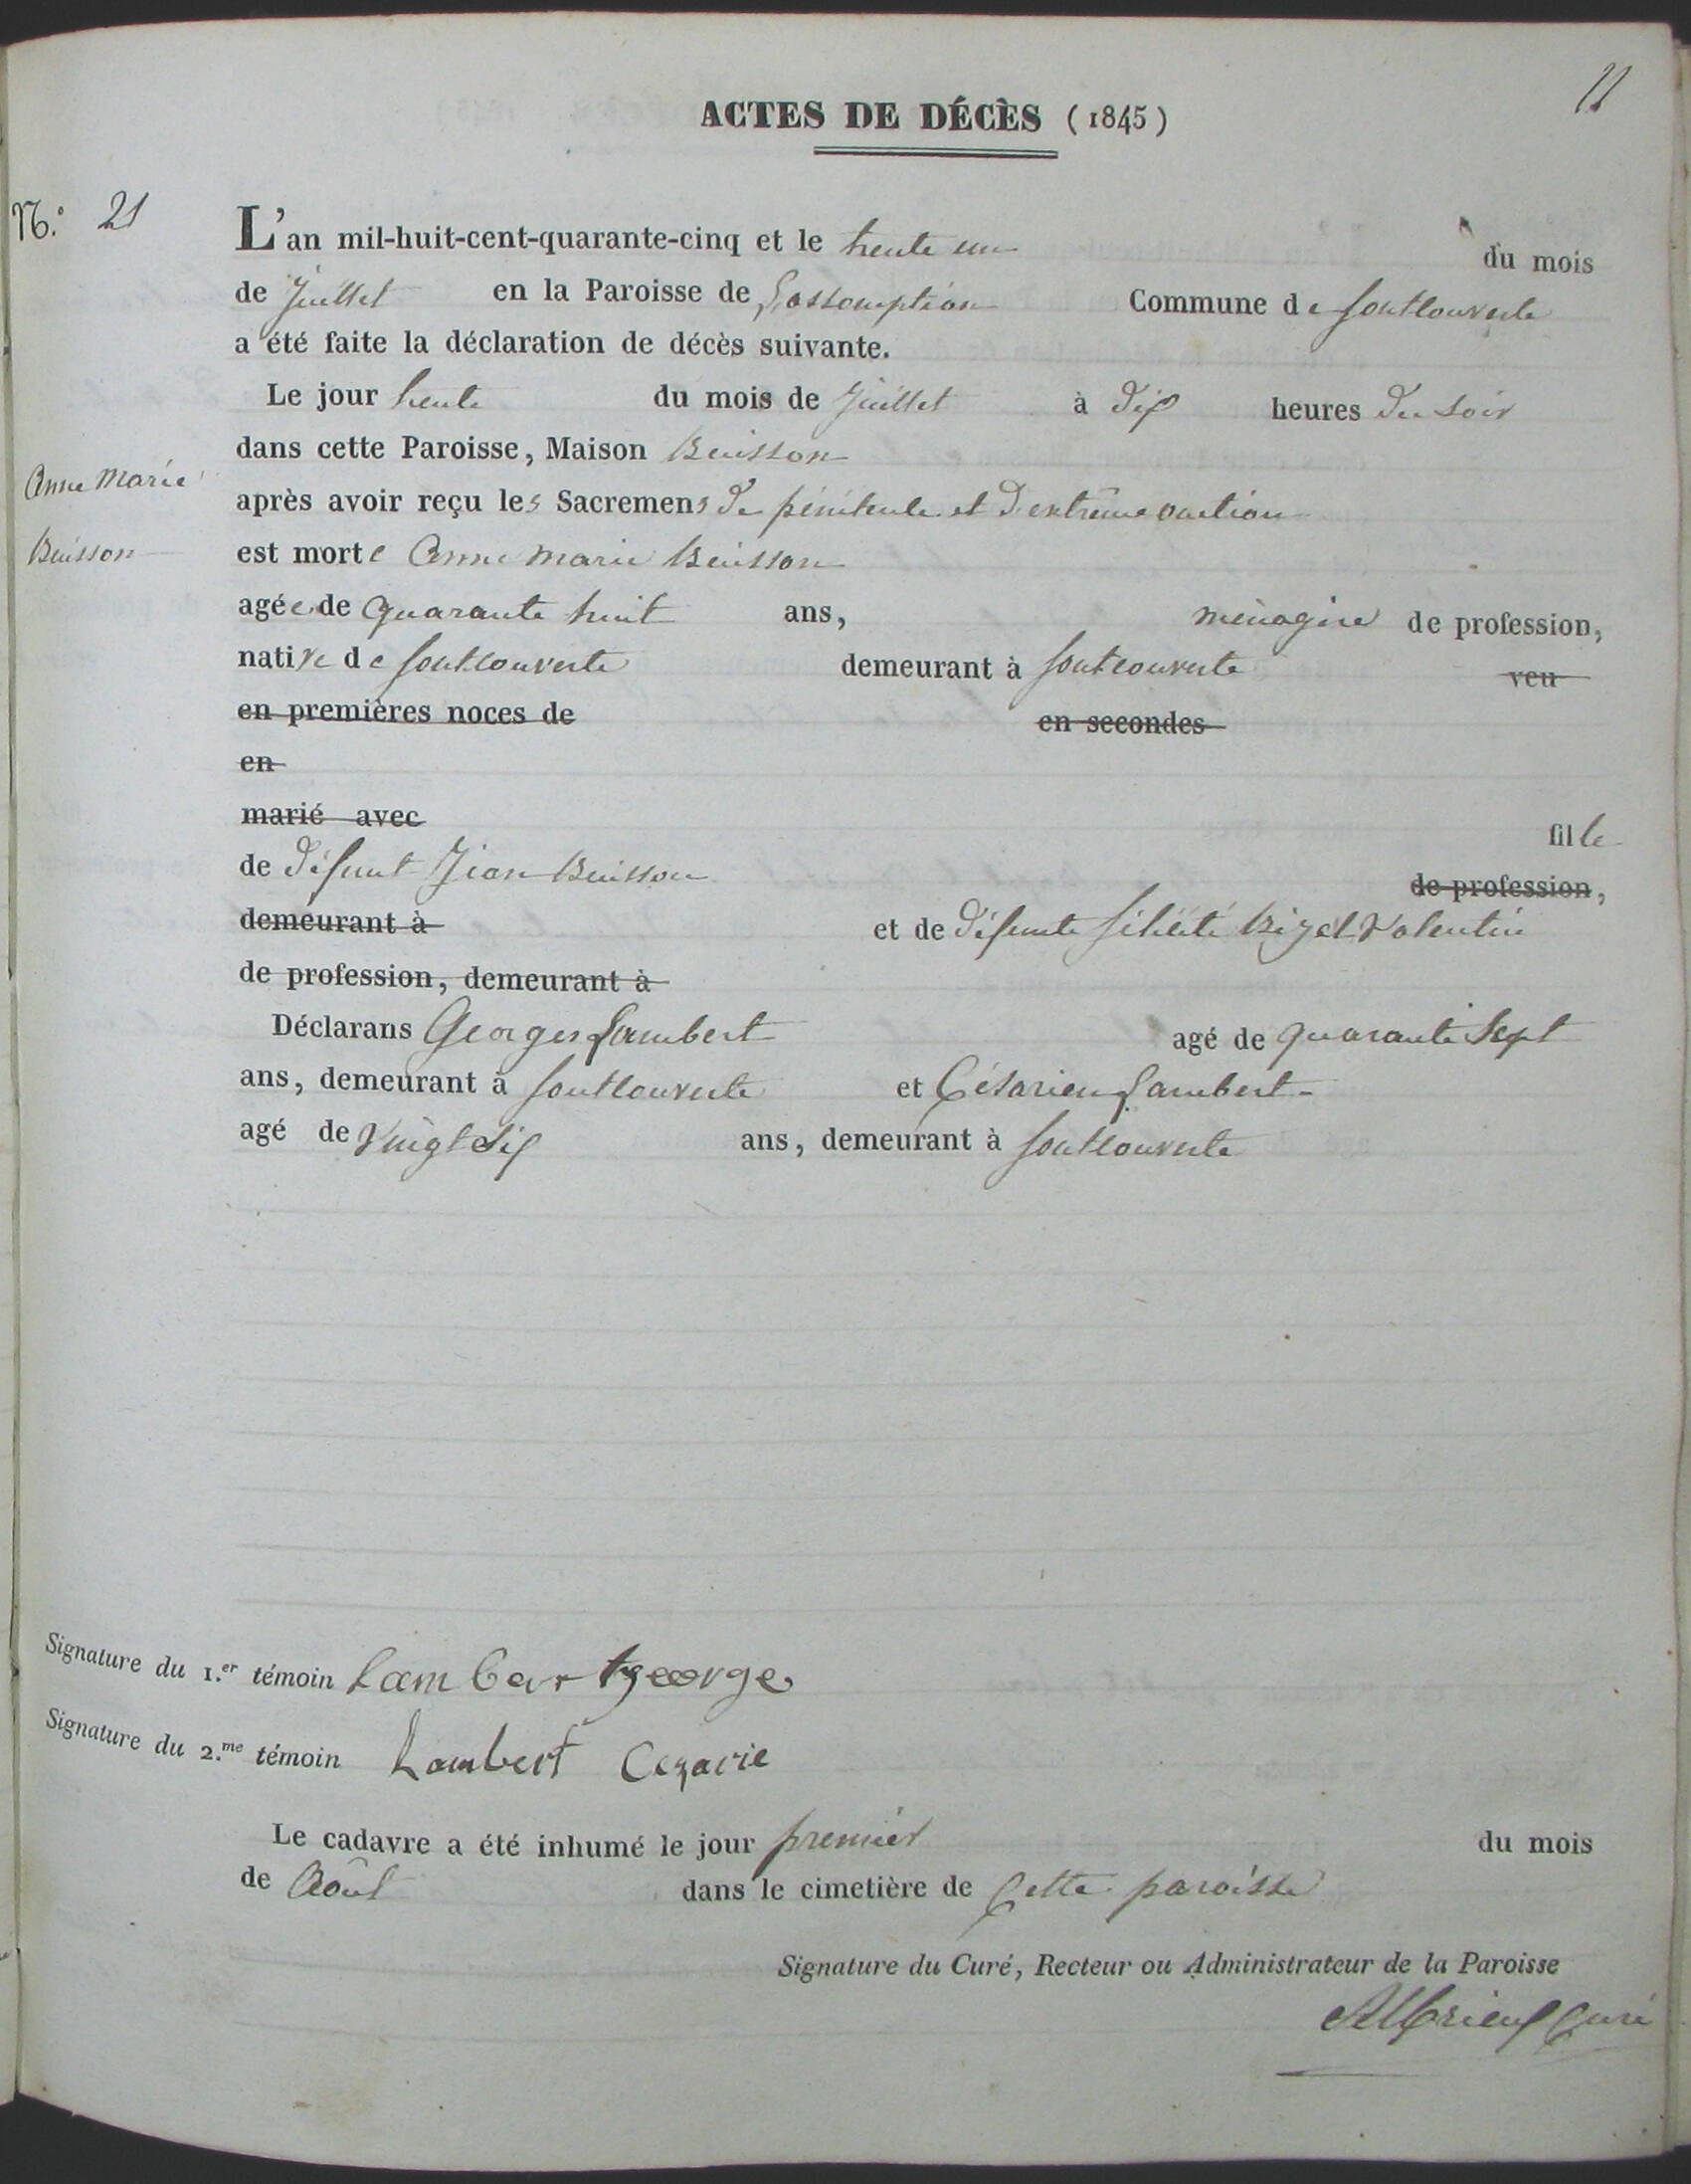 11
ACTES DE DÉCÈS (1845)
N.° 21
L'an mil-huit-cent-quarante-cinq et le trente un du mois
de Juillet en la Paroisse de L'assomption Commune de fontcouverte
a été faite la déclaration de décès suivante.
Le jour trente du mois de Juillet à dix heures du soir
dans cette Paroisse, Maison Buisson
Anne Marie
après avoir reçu les Sacremens de pénitence et d'extrême onction
Buisson
est morte Anne Marie Buisson
agée de quarante huit ans, ménagère de profession,
native de fontcouverte demeurant à fontcouverte veu
en premières noces de en secondes
en
marié avec
fille
de défunt Jean Buisson de profession,
demeurant à et de défunte félicité Rizel Valentin
de profession, demeurant à
Déclarans Georges Lambert agé de quarante sept
ans, demeurant à fontcouverte et Césarien Lambert
agé de vingt six ans, demeurant à fontcouverte
Signature du 1.er témoin Lambert george
Signature du 2.me témoin Lambert Cezarie
Le cadavre a été inhumé le jour premier du mois
de Août dans le cimetière de Cette paroisse
Signature du Curé, Recteur ou Administrateur de la Paroisse
Curé